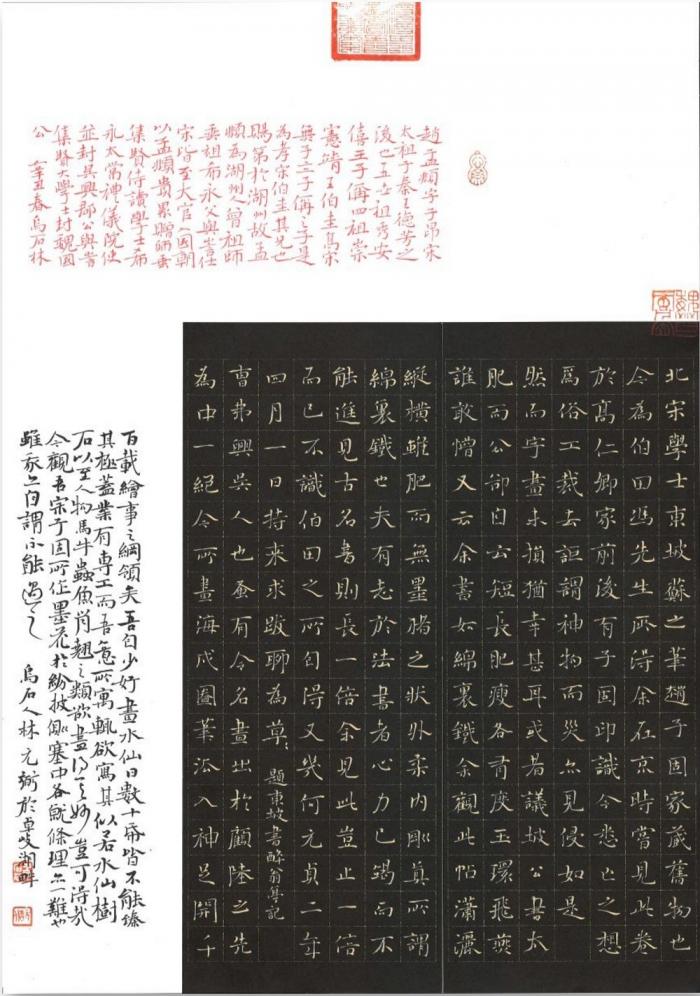 趙孟頫字子昂宋
太祖子秦王德芳之
後也五世祖秀安
僖王子偁四祖崇
憲靖王伯圭高宗
無子立子偁之子是
為孝宗伯圭其兄也
賜第於湖州故孟
頫為湖州人曾祖師
垂祖希永父與訔仕
宋皆至大官入國朝
以孟頫貴累贈師垂
集賢侍讀學士希
永太常禮儀院使
並封吳興郡公與訔
集賢大學士封魏國
公 辛丑春烏石林
北宋學士東坡蘇之筆趙子固家藏舊物也
今為伯田馮先生所得余在京時嘗見此卷
於高仁卿家前後有子固印識今悉亡之想
為俗工裁去詎謂神物而災亦見侵如是
然而字畫未損猶幸甚耳或者議坡公書太
肥而公却自云短長肥瘦各有度玉環飛燕
誰敢憎又云余書如綿裏鐵余觀此帖瀟灑
縱橫雖肥而無墨賭之狀外柔內剛真所謂
綿裏鐵也夫有志於法書者心力已竭而不
能進見古名書則長一倍余見此豈止一倍
而已不識伯田之所自得又幾何元貞二年
四月一日持來求跋聊為草〻 題東坡書醉翁亭記
曹弗興吳人也蚤有令名畫出於顧陸之先
為中一絕今所畫海戍圖筆法入神足開千
百載繪事之綱領矣吾自少好畫水仙日數十紙皆不能臻
其極蓋業有專工而吾意所寓輒欲寫其似若水仙樹
石以至人物馬牛蟲魚肖翹之類欲盡得之妙豈可得哉
今觀吾宗子固所作墨花於紛披側塞中各就條理亦一難也
雖我亦自謂不能過之 烏石人林元於湖畔